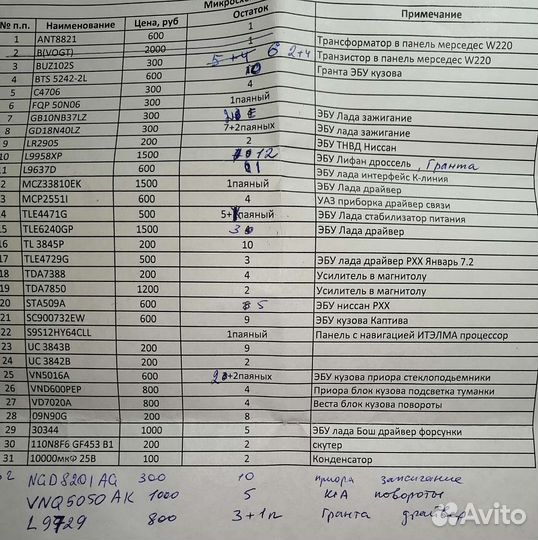 Микросх
№ п.п. Наименование Цена, руб Остаток Примечание
1 ANT8821 600 1
2 B(VOGT) 2000 Трансформатор в панель мерседес W220
3 BUZ102S 300 5+4 6 2+4 Транзистор в панель мерседес W220
4 BTS 5242-2L 600 Гранта ЭБУ кузова
5 C4706 300 4
6 FQP 50N06 300 1паяный
7 GB10NB37LZ 300 ЭБУ Лада зажигание
8 GD18N40LZ 300 7+2паяных ЭБУ Лада зажигание
9 LR2905 200 2 ЭБУ ТНВД Ниссан
10 L9958XP 1500 12 ЭБУ Лифан дроссель, Гранта
11 L9637D 600 ЭБУ лада интерфейс К-линия
2 MCZ33810EK 1500 1паяный ЭБУ Лада драйвер
3 MCP2551I 600 4 УАЗ приборка драйвер связи
4 TLE4471G 500 5+1паяный ЭБУ Лада стабилизатор питания
15 TLE6240GP 1500 3 ЭБУ Лада драйвер
16 TL 3845P 200 10
17 TLE4729G 500 3 ЭБУ лада драйвер РХХ Январь 7.2
18 TDA7388 200 4 Усилитель в магнитолу
19 TDA7850 1200 2 Усилитель в магнитолу
20 STA509A 600 5 ЭБУ ниссан РХХ
21 SC900732EW 600 9 ЭБУ кузова Каптива
22 S9S12HY64CLL 1паяный Панель с навигацией ИТЭЛМА процессор
23 UC 3843B 200 9
24 UC 3842B 200 2
25 VN5016A 600 2+2паяных ЭБУ кузова приора стеклоподьемники
26 VND600PEP 800 4 Приора блок кузова подсветка туманки
27 VD7020A 800 4 Веста блок кузова повороты
28 09N90G 200 8
29 30344 1000 5 ЭБУ лада Бош драйвер форсунки
30 110N8F6 GF453 B1 200 2 скутер
31 10000мкФ 25В 100 2 Конденсатор
NGD8201AG 300 10 приора зажигание
VNQ5050AK 1000 5 KIA повороты
L9729 800 3+1п Гранта драйвер
Avito